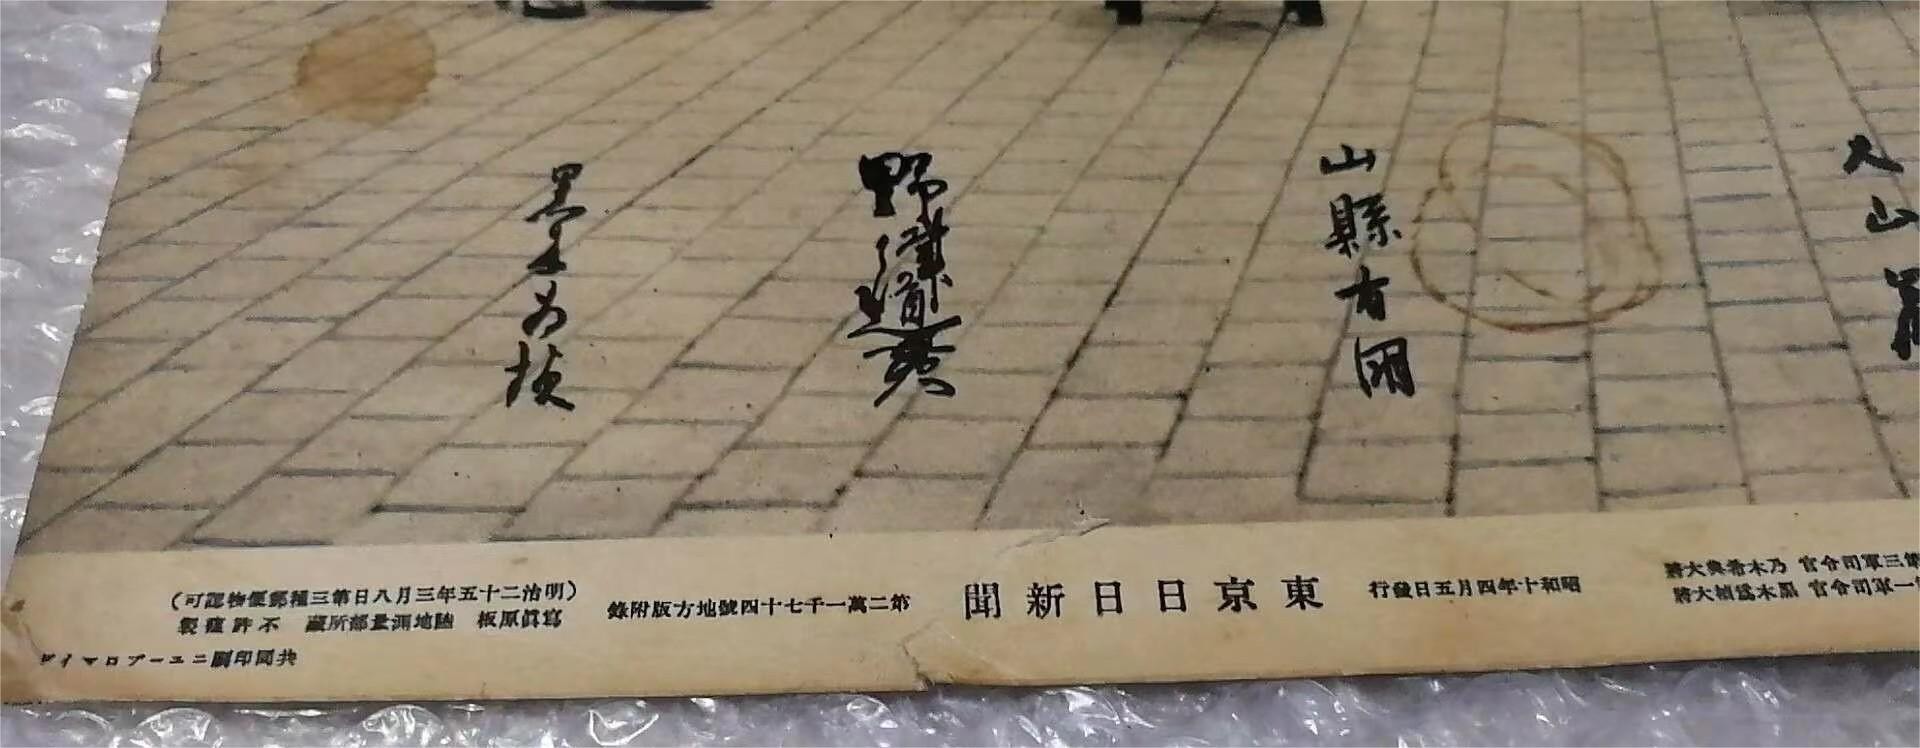 大山
山縣有朋
野津道貫
黒木為楨
第三軍司令官 乃木希典大將
第一軍司令官 黒木爲楨大將
昭和十年四月五日發行
東京日日新聞
第二萬一千七十四號地方版附錄
(明治二十五年三月八日第三種郵便物認可)
寫眞原板 陸地測量部所藏 不許複製
共同印刷ニユーブロマイド